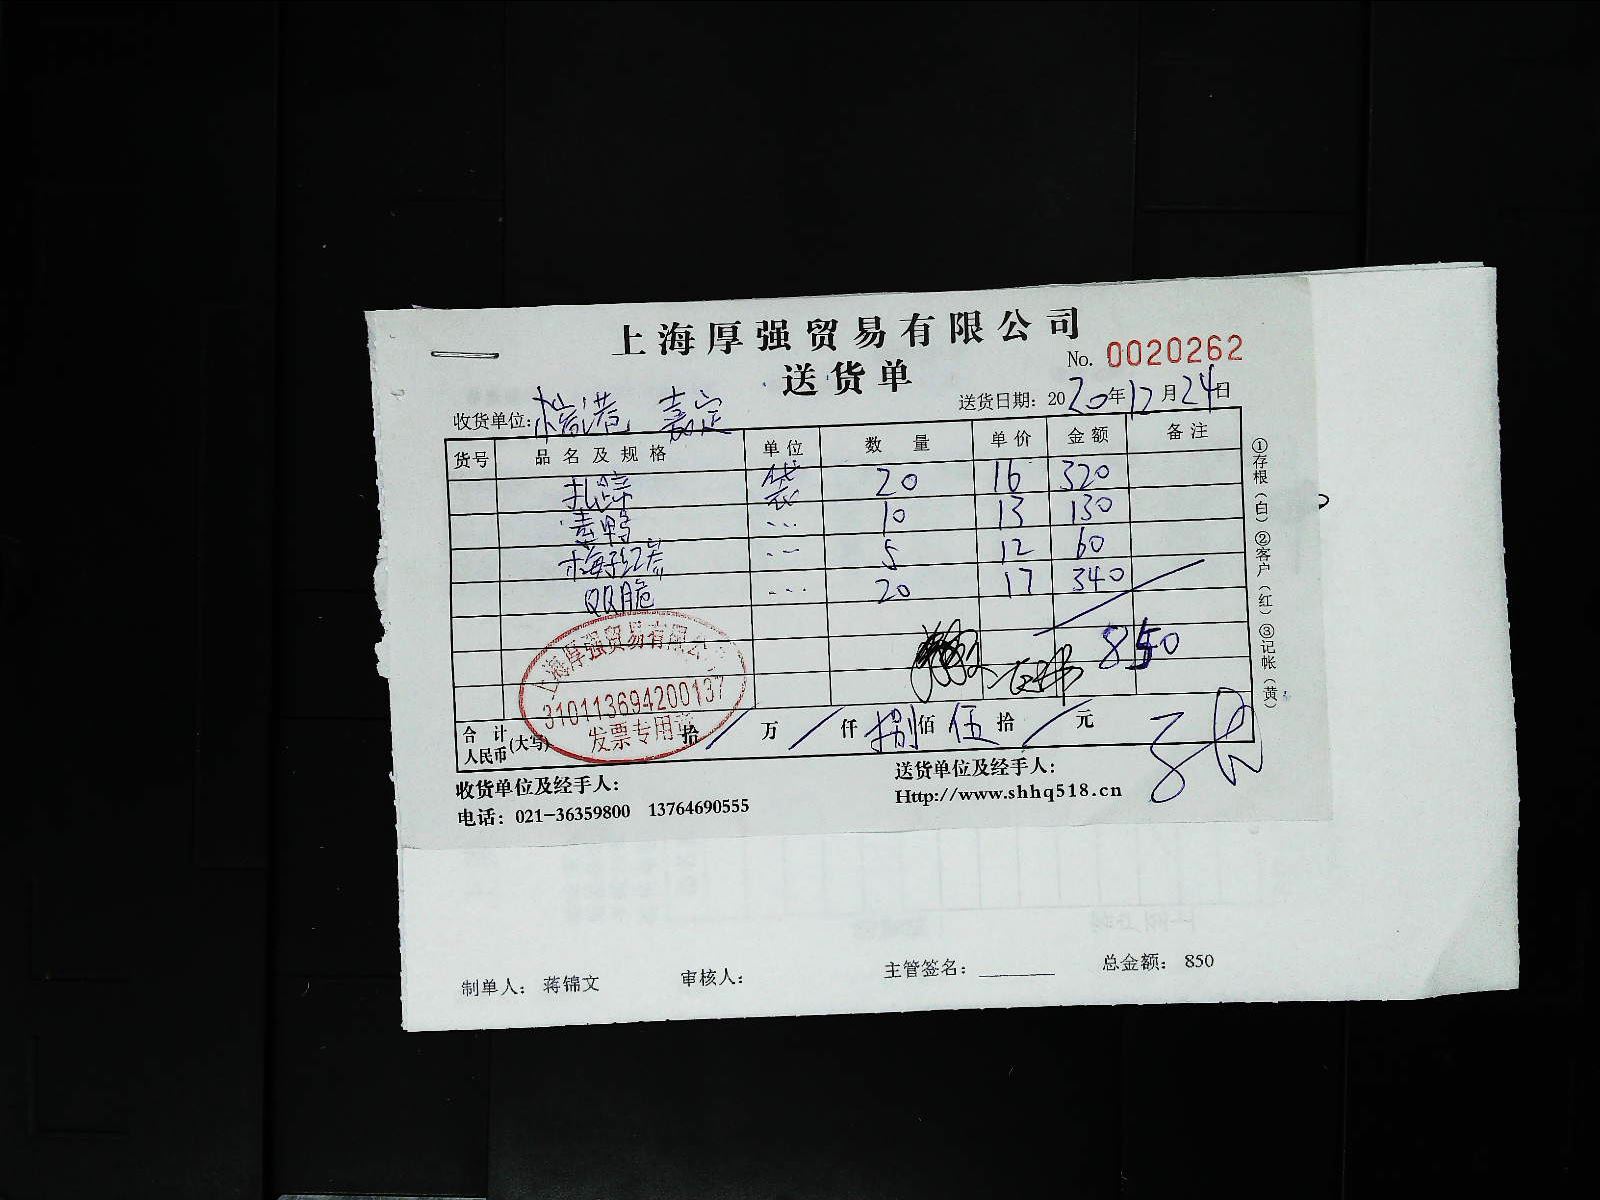 上海厚强贸易有限公司
No. 0020262
送货单
收货单位: 嘉定
送货日期: 2020年12月24日
货号 品名及规格 单位 数量 单价 金额 备注
扎蹄 袋 20 16 320
素鸭 ... 10 13 130
... 5 12 60
QQ脆 ... 20 17 340
850
上海厚强贸易有限公司
310113694200137
发票专用章
合计人民币(大写) 拾 / 万 / 仟 捌 佰 伍 拾 / 元
收货单位及经手人:
送货单位及经手人:
电话: 021-36359800 13764690555
Http://www.shhq518.cn
①存根(白)②客户(红)③记帐(黄)
制单人: 蒋锦文 审核人: 主管签名: ______ 总金额: 850